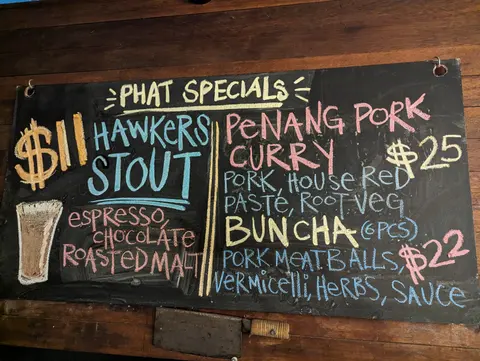 PHAT SPECIALS
$11 HAWKERS
STOUT
ESPRESSO,
CHOCOLATE
ROASTED MALT
PENANG PORK
CURRY $25
PORK, HOUSE RED
PASTE, ROOT VEG
BUN CHA (6PCS)
PORK MEATBALLS, $22
VERMICELLI, HERBS, SAUCE